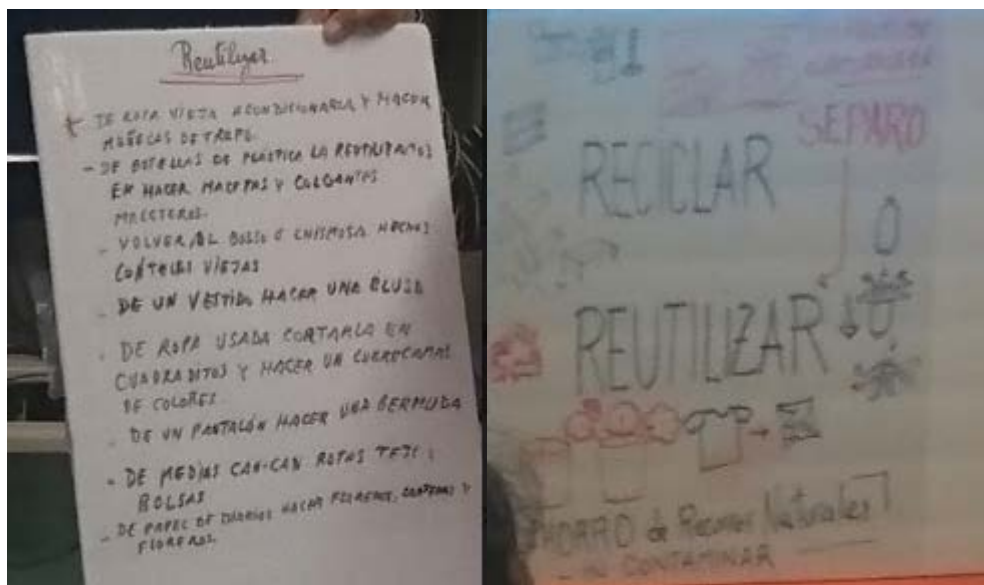 Reutilizar
DE ROPA VIEJA ACONDICIONARLA Y HACER
MUÑECAS DE TRAPO.
- DE BOTELLAS DE PLASTICA LA REUTILIZAMOS
EN HACER MACETAS Y COLGANTES
MACETEROS.
- VOLVER AL BOLSO O CHISMOSA HECHOS
CON TELAS VIEJAS
- DE UN VESTIDO HACER UNA BLUSA
- DE ROPA USADA CORTARLA EN
CUADRADITOS Y HACER UN CUBRECAMAS
DE COLORES.
- DE UN PANTALÓN HACER UNA BERMUDA
- DE MEDIAS CAN-CAN ROTAS
BOLSAS
- DE PAPEL DE DIARIOS HACER Y
FLOREROS.
SEPARO
RECICLAR
REUTILIZAR
AHORRO de Recursos Naturales
- NO CONTAMINAR